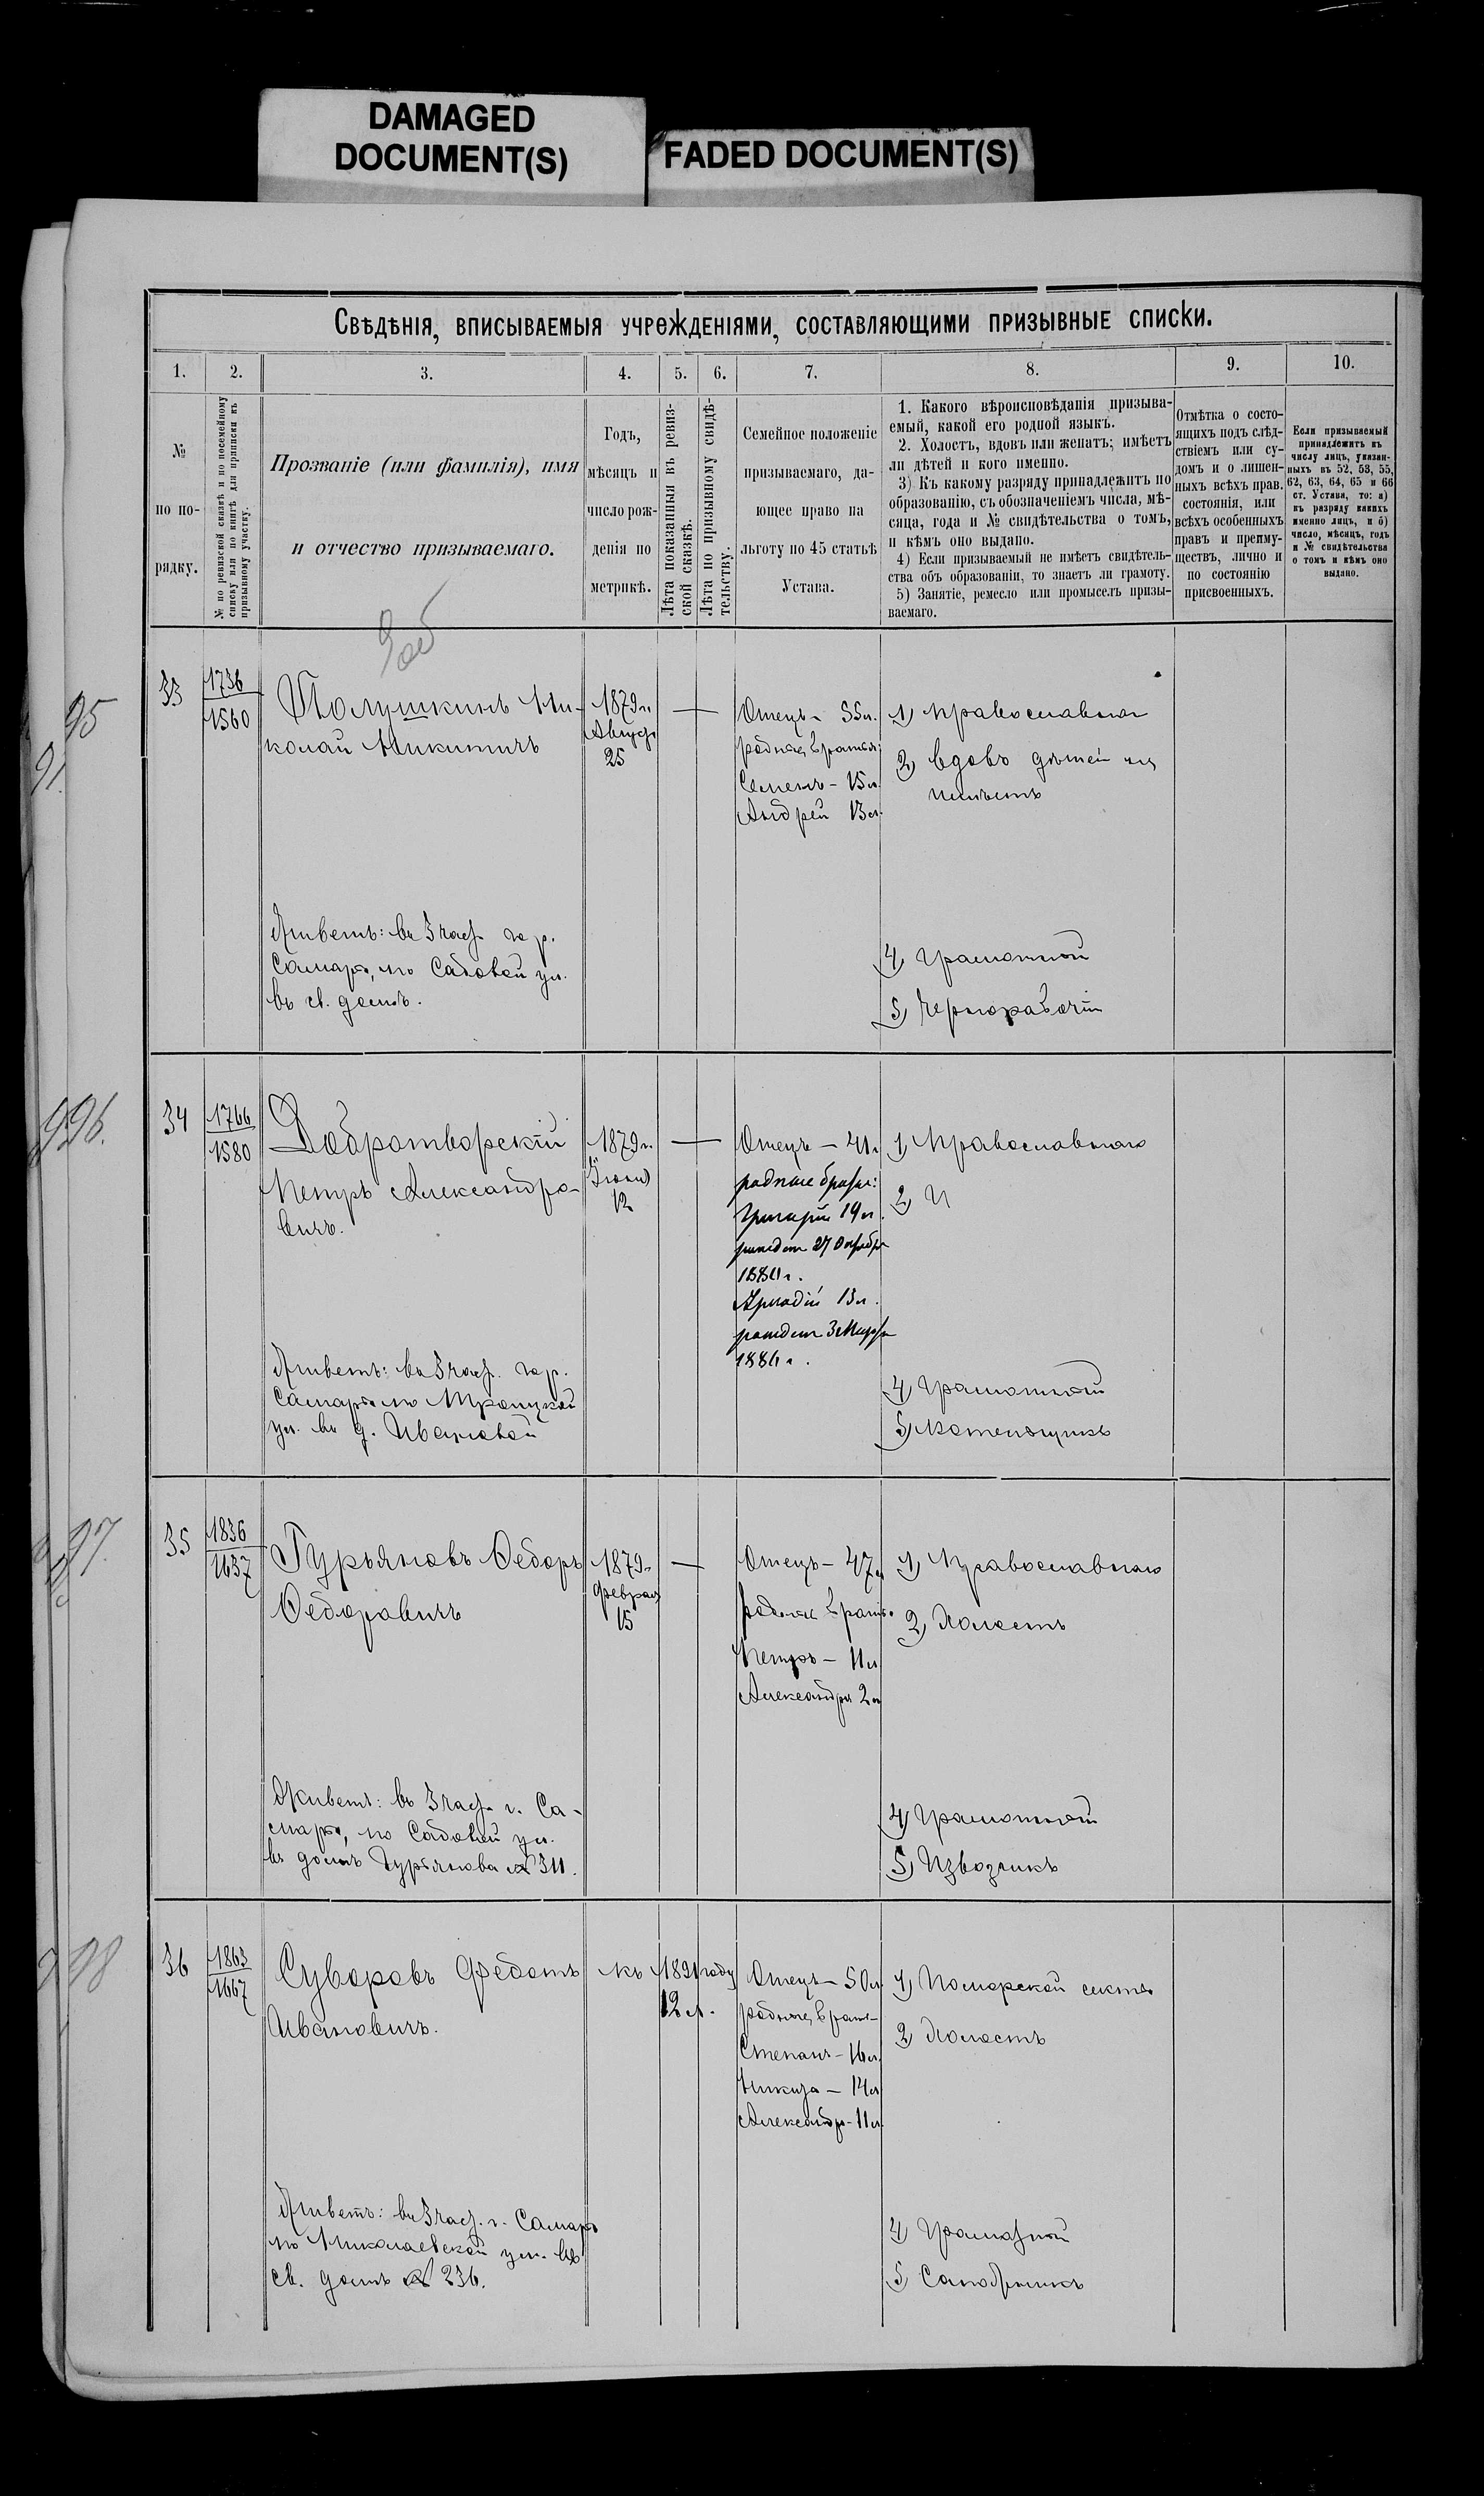 DAMAGED
DOCUMENT(S)
FADED DOCUMENT(S)
Свѣдѣнія, вписываемыя учрежденіями, составляющими призывные списки.
1.
2.
3.
4.
5.
6.
7.
8.
9.
10.
№
по по-
рядку.
№ по ревизской сказкѣ и по посемейному
списку или по книгѣ для приписки къ
призывному участку.
Прозваніе (или фамилія), имя
и отчество призываемаго.
Годъ,
мѣсяцъ и
число рож-
денія по
метрикѣ.
Лѣта показанныя въ ревиз-
ской сказкѣ.
Лѣта по призывному свидѣ-
тельству.
Семейное положеніе
призываемаго, да-
ющее право на
льготу по 45 статьѣ
Устава.
1. Какого вѣроисповѣданія призыва-
емый, какой его родной языкъ.
2. Холостъ, вдовъ или женатъ; имѣетъ
ли дѣтей и кого именно.
3) Къ какому разряду принадлежитъ по
образованію, съ обозначеніемъ числа, мѣ-
сяца, года и № свидѣтельства о томъ,
и кѣмъ оно выдано.
4) Если призываемый не имѣетъ свидѣтель-
ства объ образованіи, то знаетъ ли грамоту.
5) Занятіе, ремесло или промыселъ призы-
ваемаго.
Отмѣтка о состо-
ящихъ подъ слѣд-
ствіемъ или су-
домъ и о лишен-
ныхъ всѣхъ прав.
состоянія, или
всѣхъ особенныхъ
правъ и преиму-
ществъ, лично и
по состоянію
присвоенныхъ.
Если призываемый
принадлежитъ къ
числу лицъ, указан-
ныхъ въ 52, 53, 55,
62, 63, 64, 65 и 66
ст. Устава, то: а)
къ разряду какихъ
именно лицъ, и б)
число, мѣсяцъ, годъ
и № свидѣтельства
о томъ и кѣмъ оно
выдано.
95
91.
33
1736
1560
Полушкинъ Ни-
колай Никитичъ
1879 г.
Август
25
Отецъ - 55 л.
родные братья:
Семенъ - 15 л.
Андрей 13 л.
1) Православнаго
2) Вдовъ дѣтей не
имѣетъ
Живетъ: въ 3 част. гор.
Самары, по Садовой ул.
въ св. домѣ.
4) Грамотный
5) Чернорабочій
96.
34
1766
1580
Добротворскій
Петръ Александро-
вичъ.
1879 г.
12
Отецъ - 41 л
родные братья:
Григорій 19 л.
родился 27 Октября
1880 г.
Аркадій 13 л.
родился 3 Марта
1886 г.
1) Православнаго
2)
Живетъ: въ 3 част. гор.
Самары по Троицкой
ул. въ д. Ивановой
4) Грамотный
5)
97.
35
1836
1637
Гурьяновъ Федоръ
Федоровичъ
1879 г.
Февраля
15
Отецъ - 47 л
родные братья
Петръ - 11 л
Александръ 2 л
1) Православнаго
2) Холостъ
Живетъ: въ 3 част. г. Са-
мары, по Садовой ул.
въ домѣ Гурьянова № 311.
4) Грамотный
5) Извозчикъ
98
36
1863
1667
Суворовъ Федотъ
Ивановичъ.
къ 1891 году
12 л.
Отецъ - 50 л.
родные брат-
Степанъ - 16 л.
Никита - 14 л
Александръ - 11 л.
1) Поморской секты
2) Холостъ
Живетъ: въ 3 част. г. Самары
по Николаевской ул. въ
св. домѣ № 236.
4) Грамотный
5) Сапожникъ